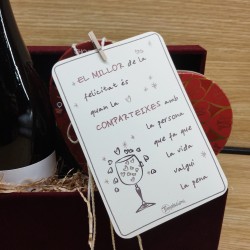 EL MILLOR de la
felicitat és
quan la
COMPARTEIXES amb
la persona
que fa que
la vida
valgui
la pena